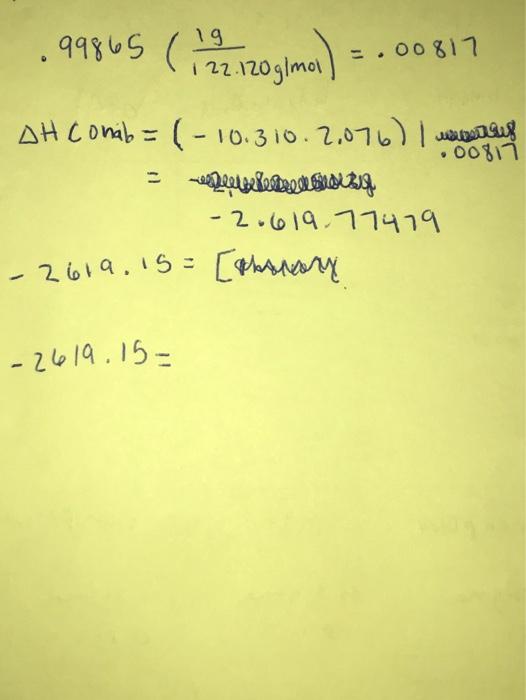 .99865 (1g/122.120g/mol) = .00817
ΔH Comb = (-10.310.2.076) | .00817
=
-2.619.77479
-2619.15 = [
-2619.15 =